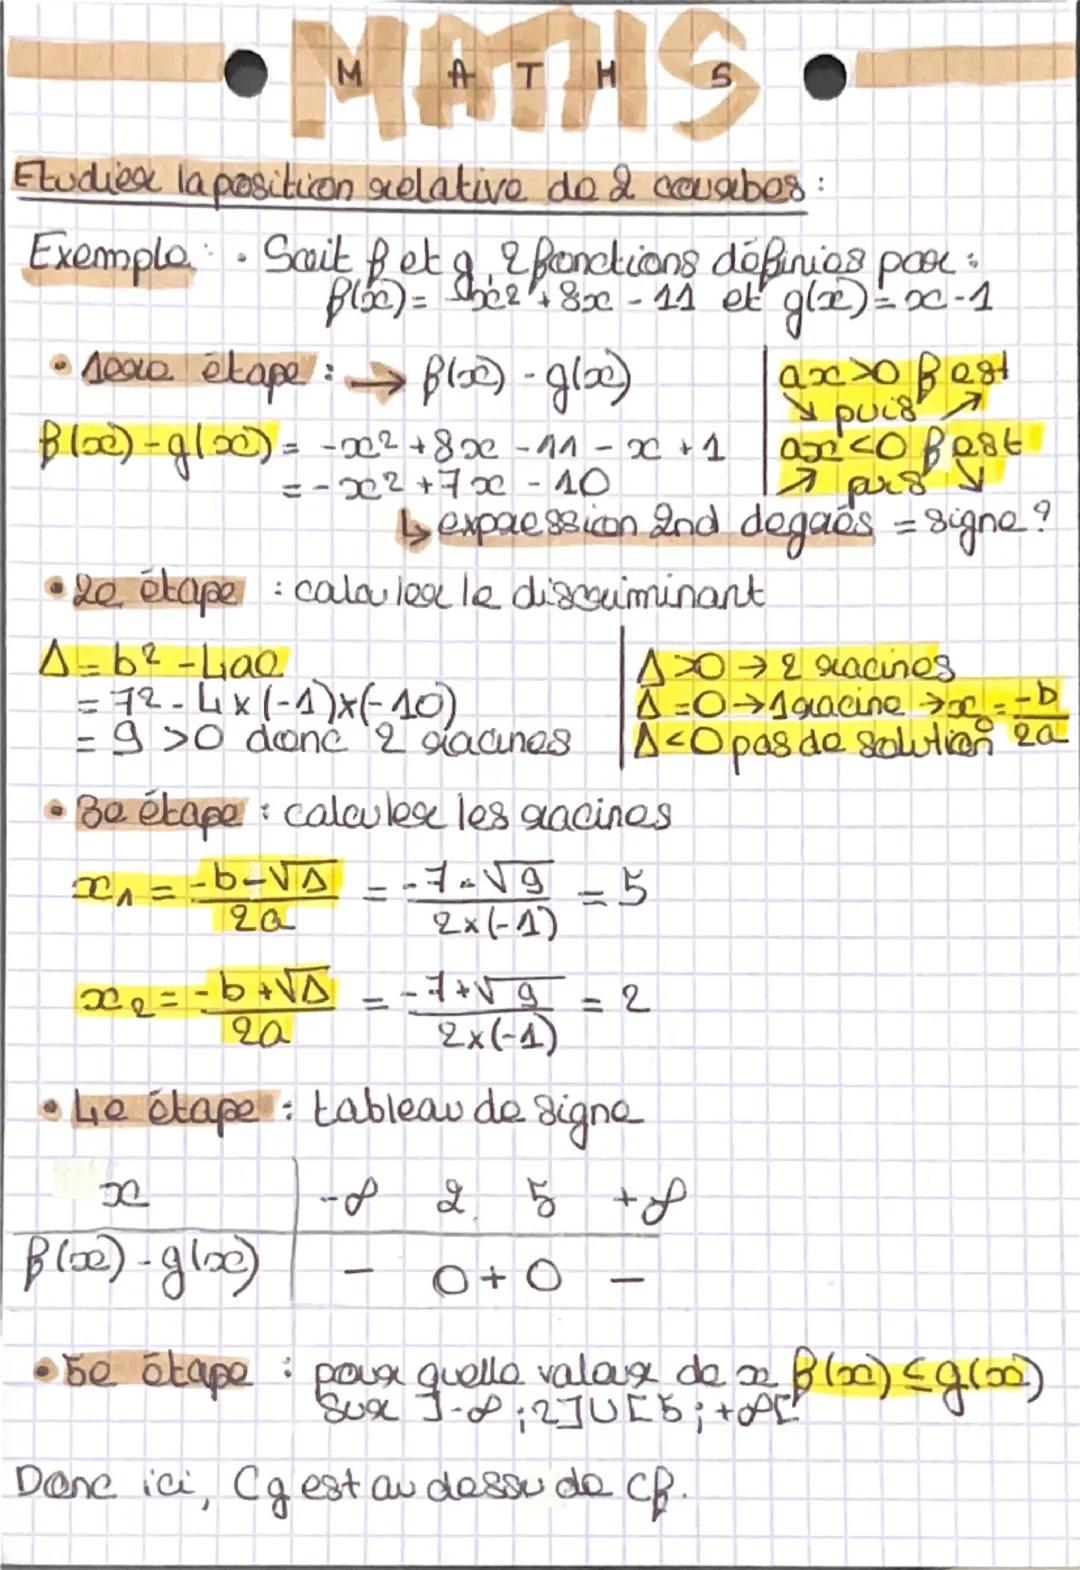 MATHS
M A T H S
Etudier la position relative de 2 courbes :
Exemple : • Soit f et g, 2 fonctions définies par :
f(x) = -x² + 8x - 11 et g(x) = x - 1
• 1ere étape : → f(x) - g(x)
ax>0 f est
↘ puis ↗
f(x) - g(x) = -x² + 8x - 11 - x + 1
ax<0 f est
= -x² + 7x - 10
↗ puis ↘
↳ expression 2nd degrés = signe ?
• 2e étape : calculer le discriminant
Δ = b² - 4ac
Δ>0 → 2 racines
= 7² - 4 x (-1)x(-10)
Δ=0 → 1 racine → x₀ = -b/2a
= 9 > 0 donc 2 racines
Δ<0 pas de solution
• 3e étape : calculer les racines
x₁ = -b-√Δ/2a = -7-√9/2x(-1) = 5
x₂ = -b+√Δ/2a = -7+√9/2x(-1) = 2
• 4e étape : tableau de signe
x -∞ 2 5 +∞
f(x) - g(x) - 0 + 0 -
• 5e étape : pour quelle valeur de x f(x) ≤ g(x)
sur ]-∞ ; 2] U [5 ; +∞[
Donc ici, Cg est au dessu de Cf.